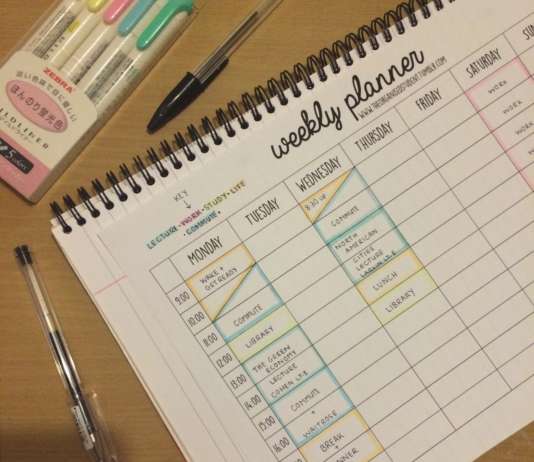 ZEBRA
ほんのり蛍光色
5 colors
weekly planner
WWW.THEORGANISEDSTUDENT.TUMBLR.COM
KEY
LECTURE · WORK · STUDY · LIFE
· COMMUTE ·
MONDAY
TUESDAY
WEDNESDAY
THURSDAY
FRIDAY
SATURDAY
9:00
10:00
8:00
12:00
13:00
14:00
15:00
16:00
WAKE +
GET READY
COMMUTE
LIBRARY
THE GREEN
ECONOMY
LECTURE
COHEN LT.2
COMMUTE
+
WAITROSE
BREAK
+
8:30 UP
COMMUTE
NORTH
AMERICAN
CITIES
LECTURE
LUNCH
LIBRARY
WORK
WORK
WORK